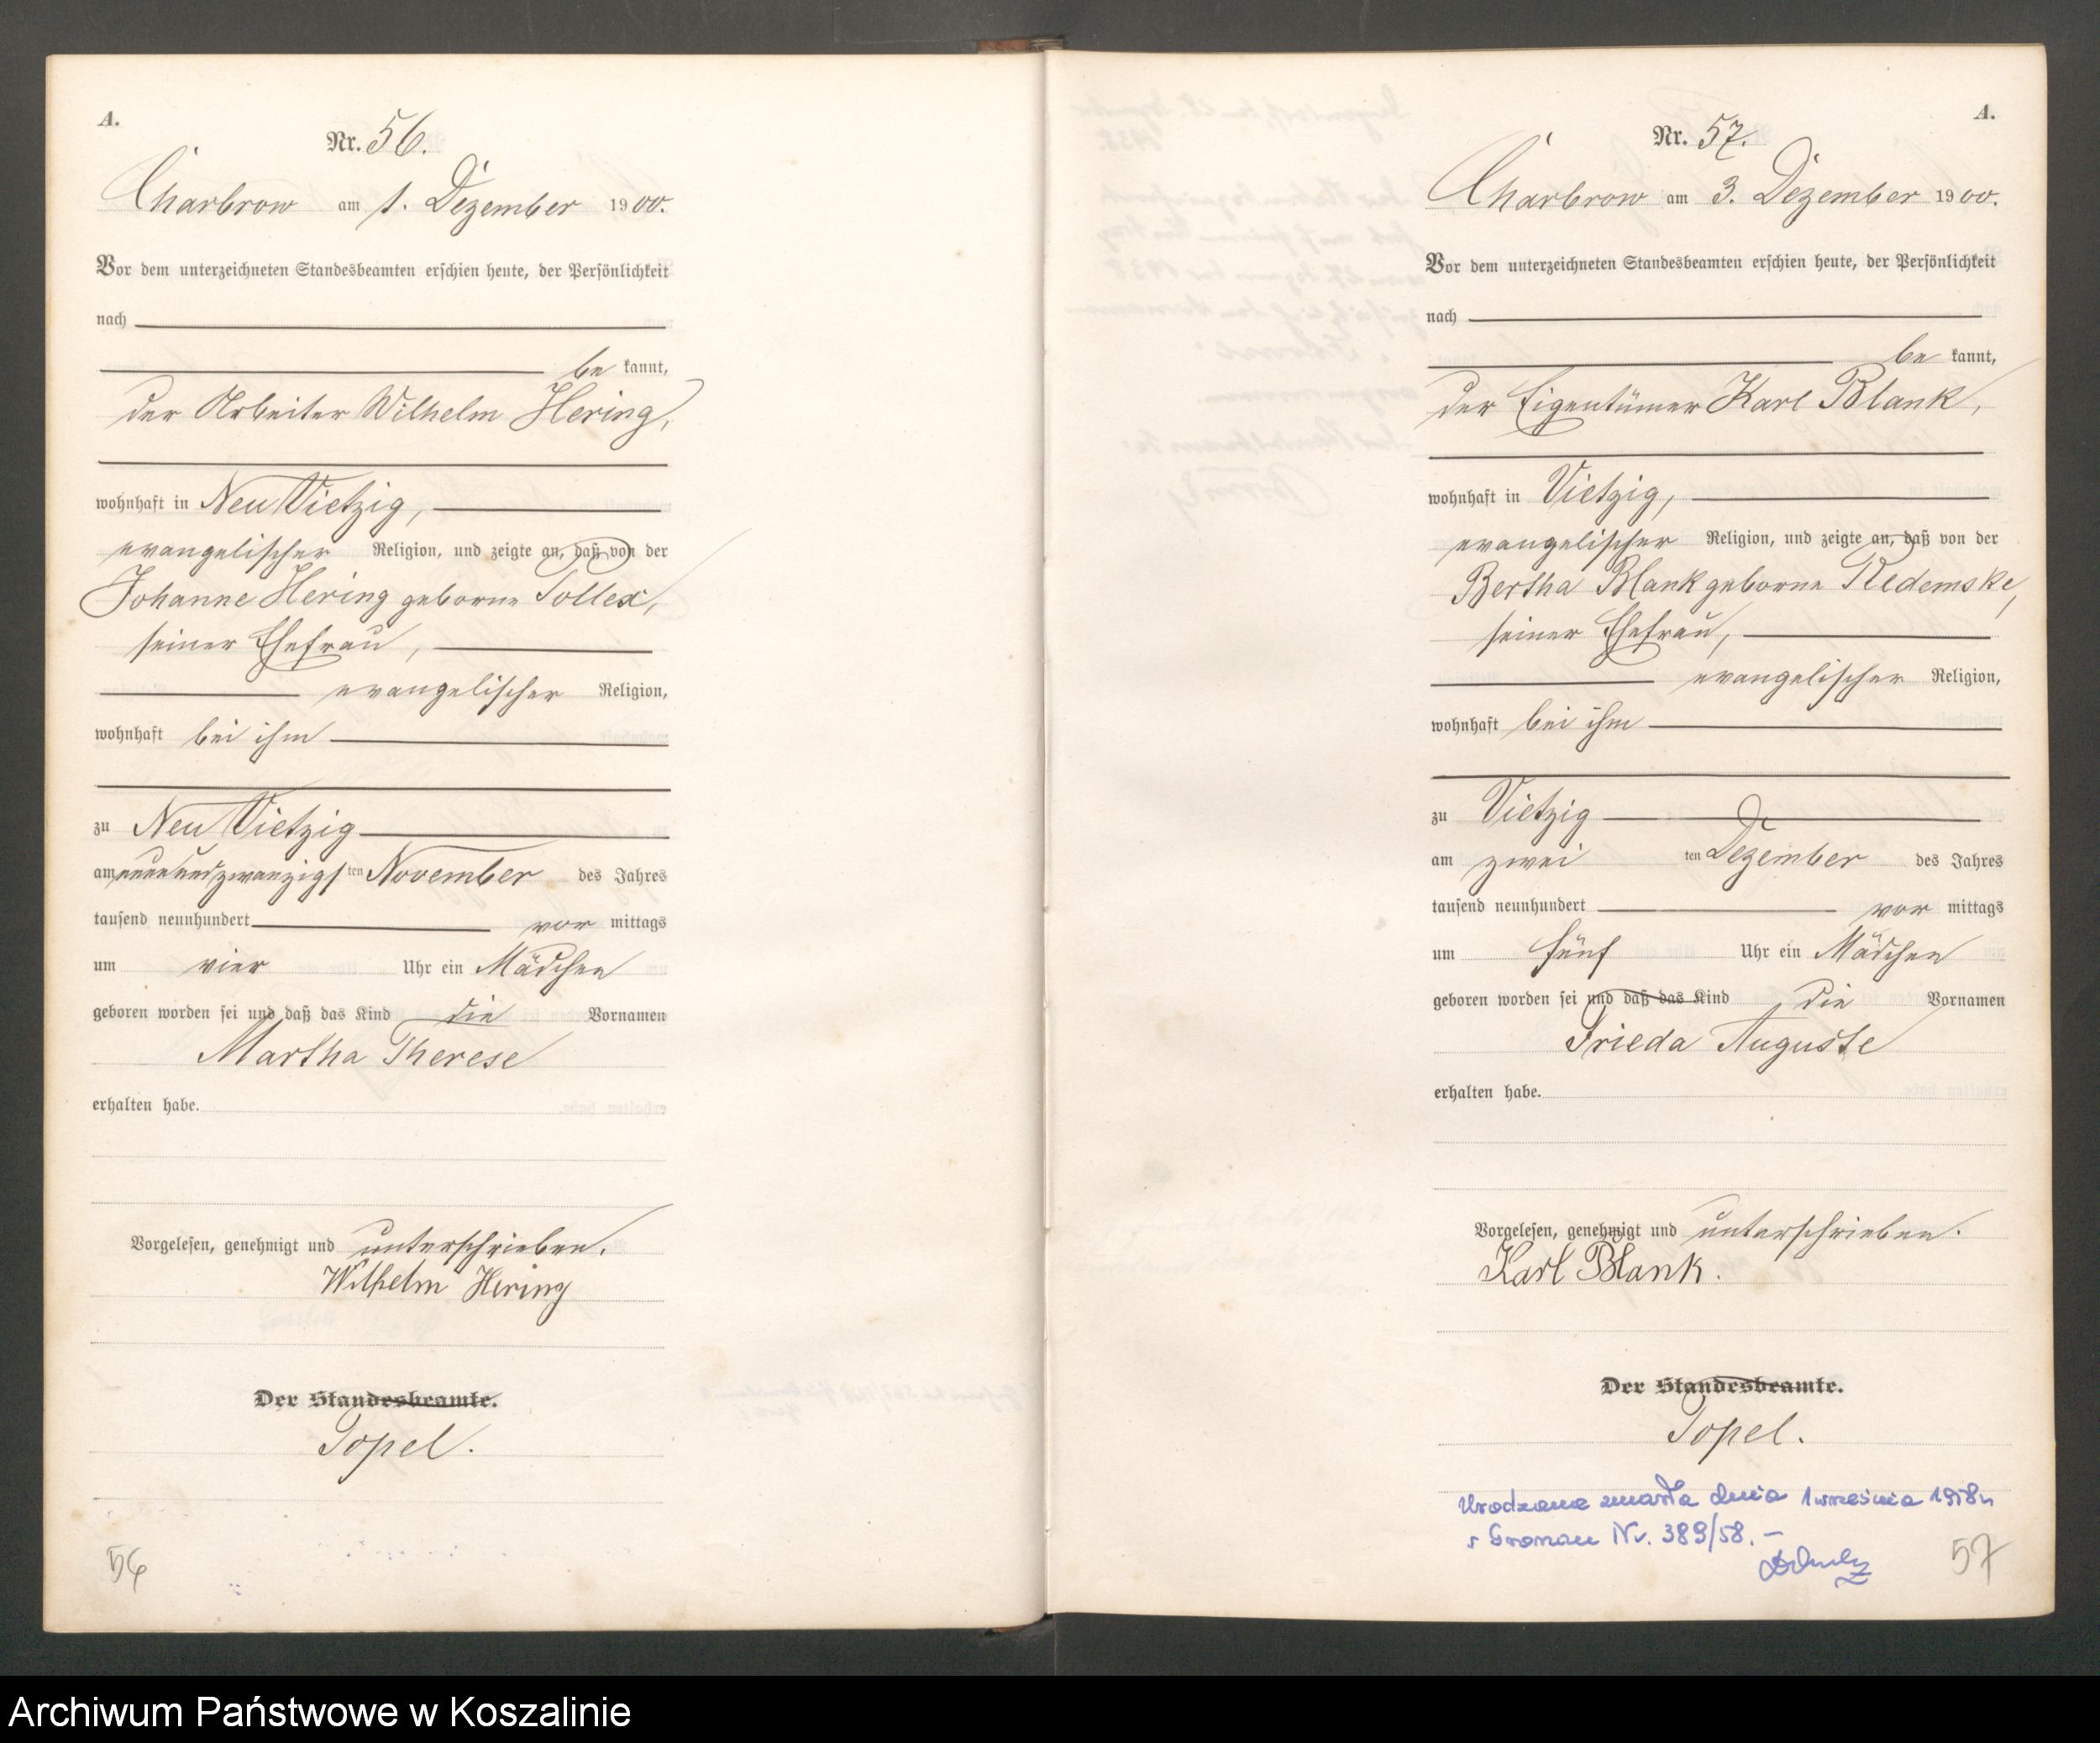 A.
Nr. 56.
Charbrow am 1. Dezember 1900.
Vor dem unterzeichneten Standesbeamten erschien heute, der Persönlichkeit
nach
be kannt,
der Arbeiter Wilhelm Hering,
wohnhaft in Neu Vietzig,
evangelischer Religion, und zeigte an, daß von der
Johanne Hering geborne Pollex,
seiner Ehefrau,
evangelischer Religion,
wohnhaft bei ihm
zu Neu Vietzig
am neunundzwanzigsten November des Jahres
tausend neunhundert vor mittags
um vier Uhr ein Mädchen
geboren worden sei und daß das Kind die Vornamen
Martha Therese
erhalten habe.
Vorgelesen, genehmigt und unterschrieben.
Wilhelm Hering
Der Standesbeamte.
Topel.
56
A.
Nr. 57.
Charbrow am 3. Dezember 1900.
Vor dem unterzeichneten Standesbeamten erschien heute, der Persönlichkeit
nach
be kannt,
der Eigentümer Karl Blank,
wohnhaft in Vietzig,
evangelischer Religion, und zeigte an, daß von der
Bertha Blank geborne Redemske,
seiner Ehefrau,
evangelischer Religion,
wohnhaft bei ihm
zu Vietzig
am zwei ten Dezember des Jahres
tausend neunhundert vor mittags
um fünf Uhr ein Mädchen
geboren worden sei und daß das Kind die Vornamen
Frieda Auguste
erhalten habe.
Vorgelesen, genehmigt und unterschrieben.
Karl Blank.
Der Standesbeamte.
Topel.
Urodzona zmarła dnia 1 września 1958 r
Gronau Nr. 389/58. –
57
Archiwum Państwowe w Koszalinie